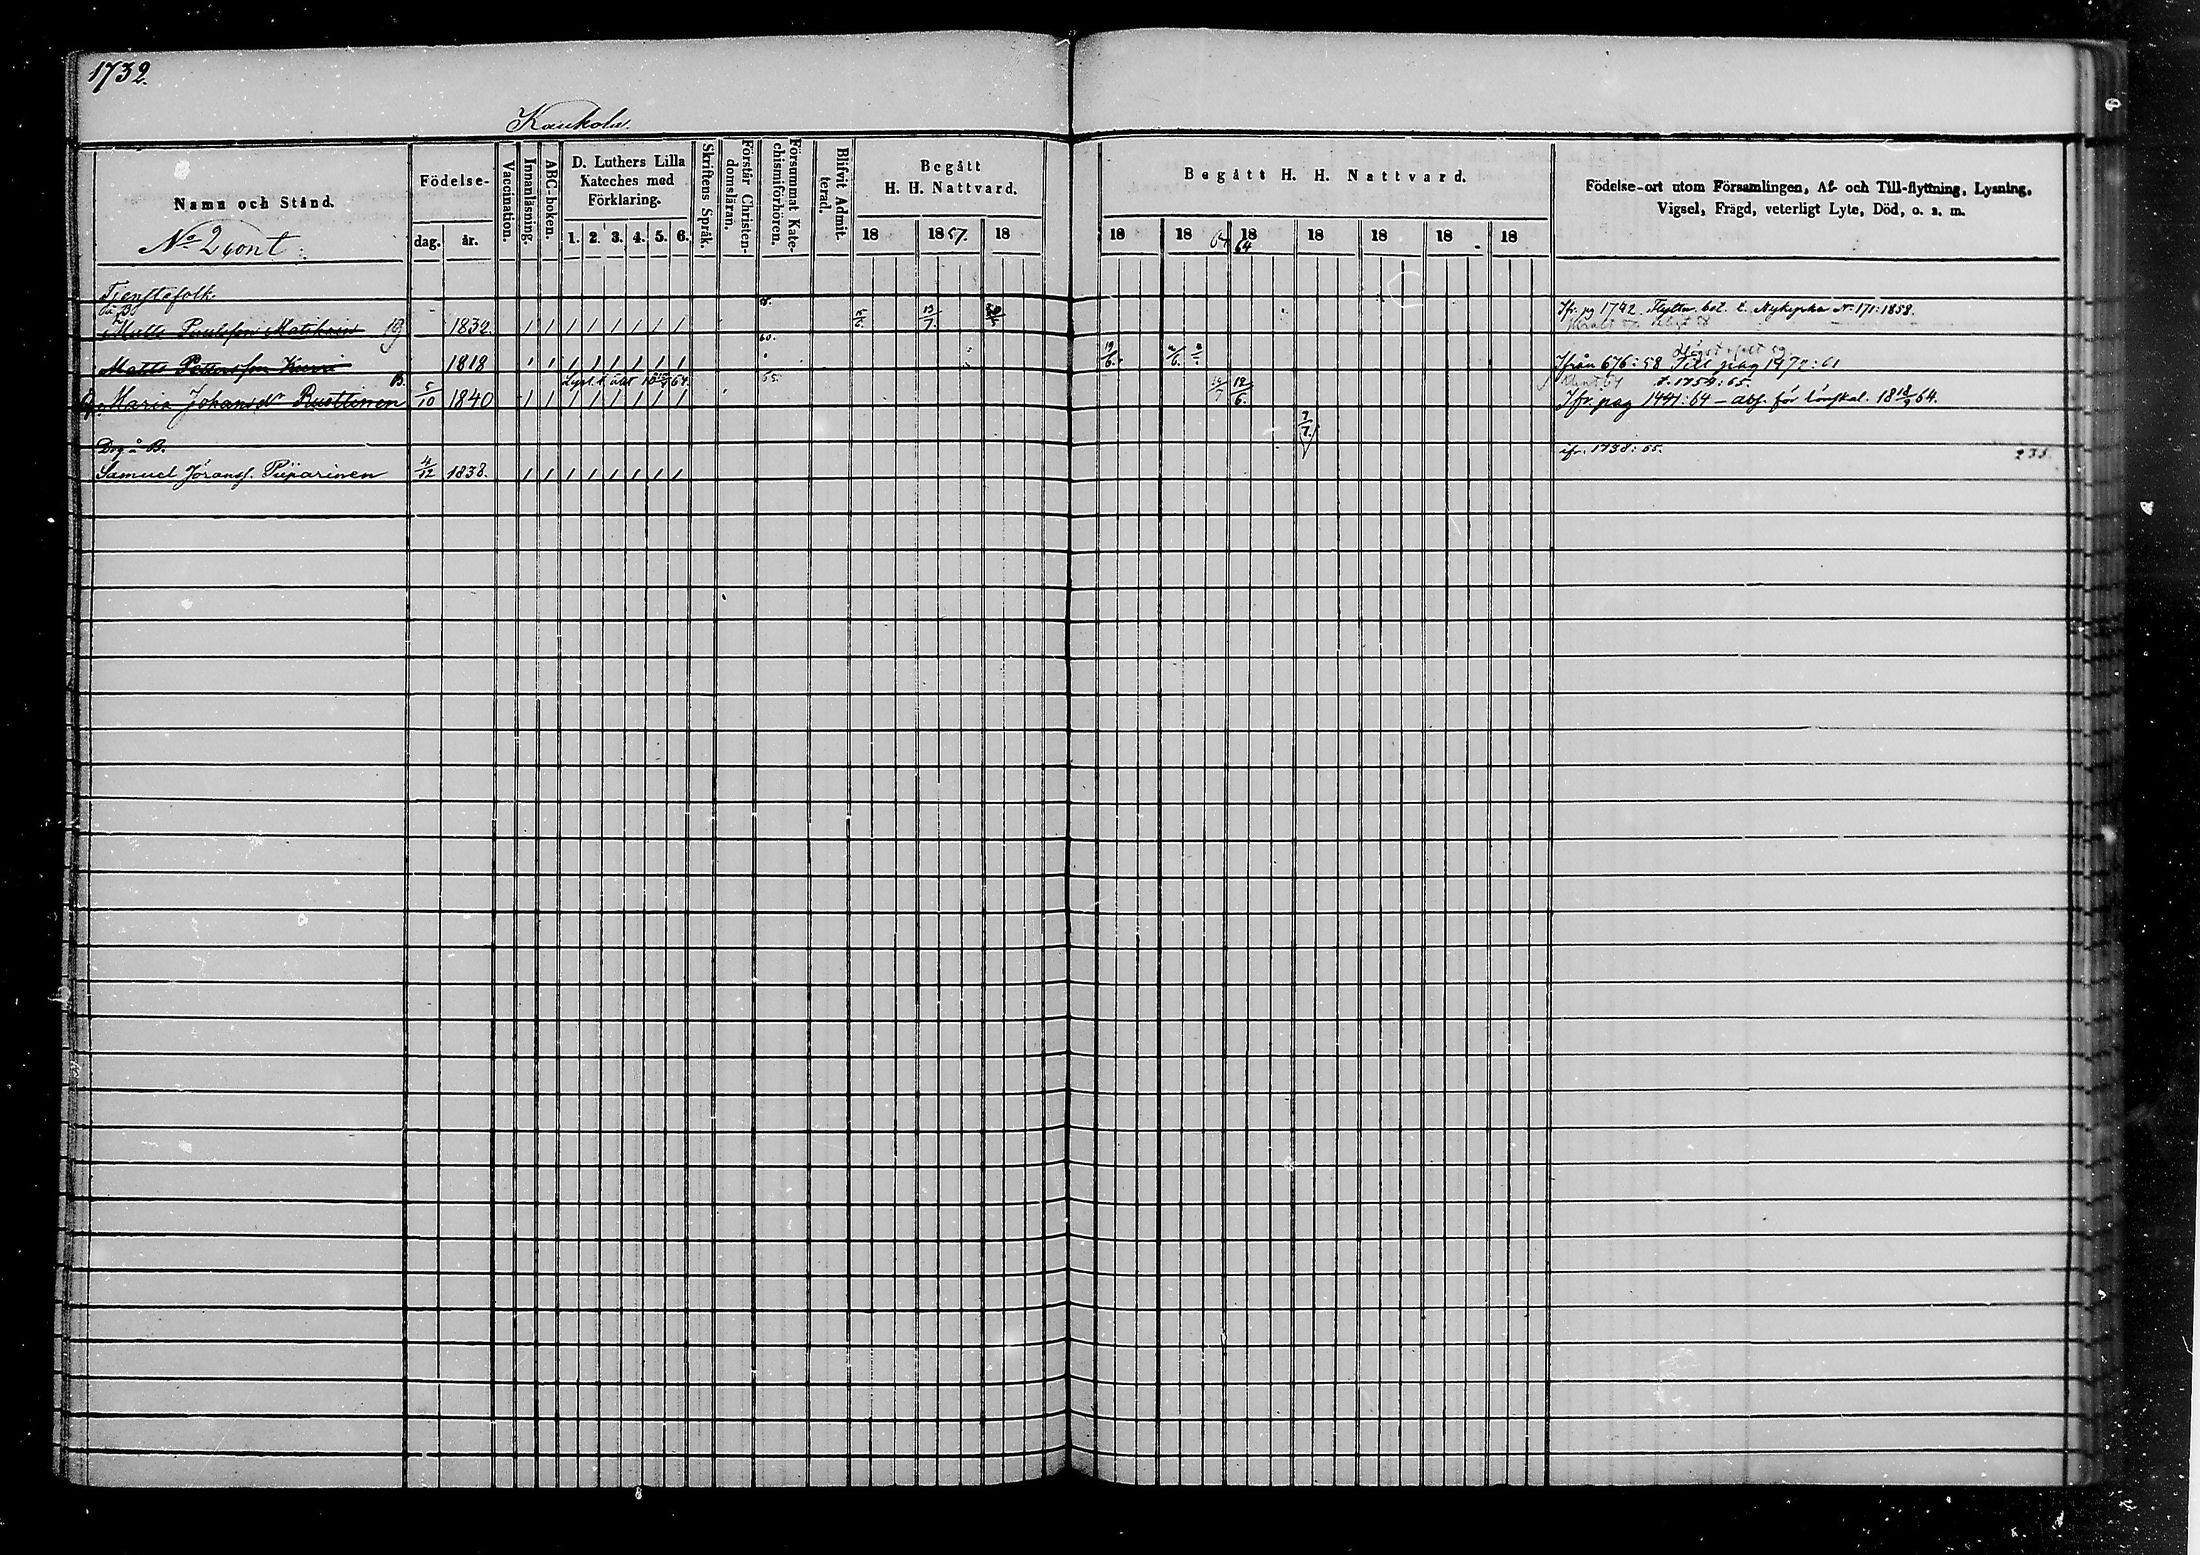 1732
Kaukola.
Namn och Stånd.
Födelse-
dag. år.
Vaccination.
Innanläsning.
ABC-boken.
D. Luthers Lilla
Kateches med
Förklaring.
1. 2. 3. 4. 5. 6.
Skriftens Språk.
Förstår Christen-
domsläran.
Försummat Kate-
chismiförhören.
Blifvit Admit-
terad.
Begått
H. H. Nattvard.
18 1857. 18
Begått H. H. Nattvard.
18 18 18 64 18 18 18 18
Födelse-ort utom Församlingen, Af- och Till-flyttning, Lysning,
Vigsel, Frägd, veterligt Lyte, Död, o. s. m.
No 2 cont.
Tjenstefolk.
Matts Paulsson 1832. Ifr. pg 1792. Flyttn. bet. t. Nykyrka No 171:1858.
Matts Pettersson 1818 Ifrån 676:58 Till pag 1972:61
Maria Johansdr Ruottinen 5/10 1840 Ifr. pag 1441:64 – abs. för lönskal. 18 18/9 64.
Drg å B. ifr. 1738:65. 235.
Samuel Göranss. Piiparinen 4/12 1838.